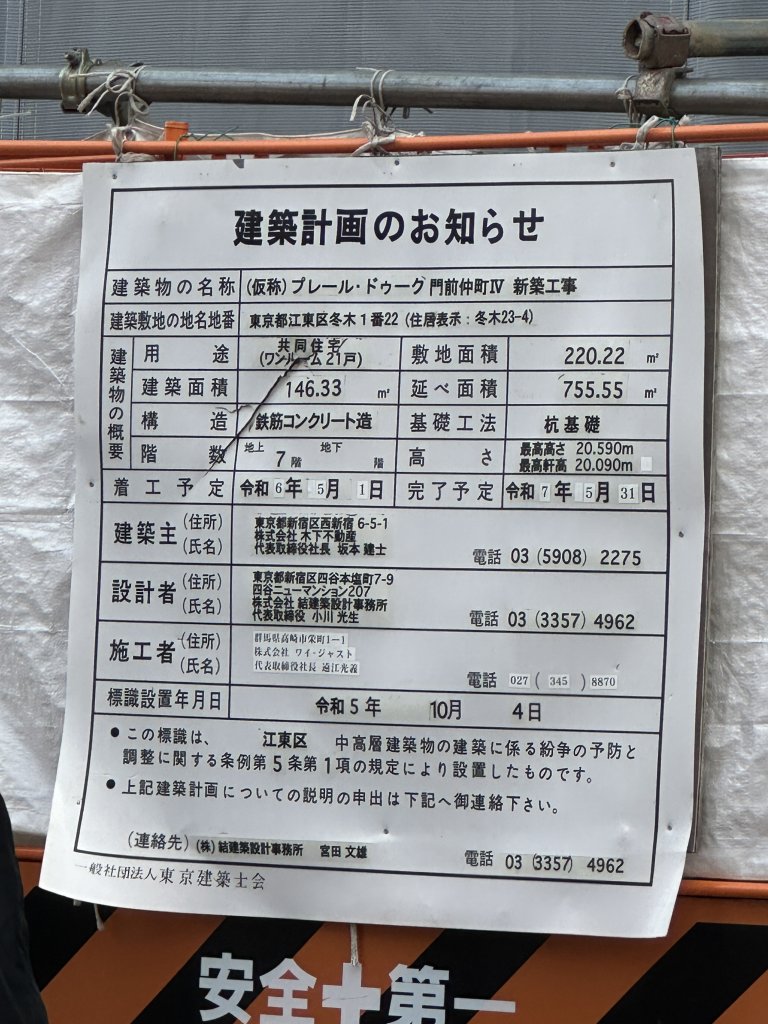 建築計画のお知らせ
建築物の名称 (仮称) プレール・ドゥーク 門前仲町Ⅳ 新築工事
建築敷地の地名地番 東京都江東区冬木1番22 (住居表示：冬木23-4)
建築物の概要
用途 共同住宅 (ワンルーム 21戸) 敷地面積 220.22 ㎡
建築面積 146.33 ㎡ 延べ面積 755.55 ㎡
構造 鉄筋コンクリート造 基礎工法 杭基礎
階数 地上 7階 地下 階 高さ 最高高さ 20.590m 最高軒高 20.090m
着工予定 令和6年5月1日 完了予定 令和7年5月31日
建築主 (住所) (氏名)
東京都新宿区西新宿 6-5-1
株式会社 木下不動産
代表取締役社長 坂本 建士
電話 03 (5908) 2275
設計者 (住所) (氏名)
東京都新宿区四谷本塩町7-9
四谷ニューマンション207
株式会社 結建築設計事務所
代表取締役 小川 光生
電話 03 (3357) 4962
施工者 (住所) (氏名)
群馬県高崎市栄町1-1
株式会社 ワイ・ジャスト
代表取締役社長 遠江光義
電話 027 ( 345 ) 8870
標識設置年月日 令和5年 10月 4日
● この標識は、 江東区 中高層建築物の建築に係る紛争の予防と
調整に関する条例第5条第1項の規定により設置したものです。
● 上記建築計画についての説明の申出は下記へ御連絡下さい。
(連絡先) (株) 結建築設計事務所 宮田 文雄 電話 03 (3357) 4962
一般社団法人東京建築士会
安全✚第一